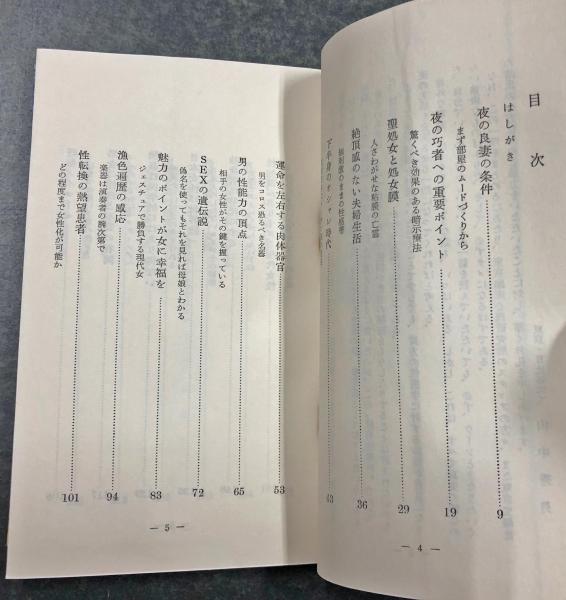 目次
はしがき
夜の良妻の条件 9
まず部屋のムードづくりから
夜の巧者への重要ポイント 19
驚くべき効果のある暗示療法
聖処女と処女膜 29
人さわがせな粘膜の亡霊
絶頂感のない夫婦生活 36
のままの性感帯
下半身のオシャレ時代 43
— 4 —
運命を左右する肉体器官 53
男をコロス恐るべき名器
男の性能力の頂点 65
相手の女性がその鍵を握っている
SEXの遺伝説 72
偽名を使ってもそれを見れば母娘とわかる
魅力のポイントが女に幸福を 83
ジェスチュアで勝負する現代女
漁色遍歴の感応 94
楽器は演奏者の腕次第で
性転換の熱望患者 101
どの程度まで女性化が可能か
— 5 —